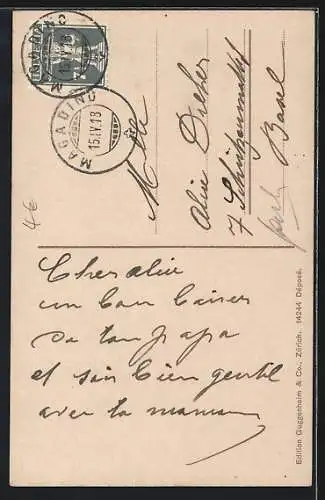 HELVETIA
MAGADINO
15.IV.18
MAGADINO
15.IV.18
Mlle
Alice Dreher
7 Schützenmattstr
Basel
4€
Cher alice
un bon baiser
de ton papa
et sois bien gentil
avec ta maman
Edition Guggenheim & Co., Zürich. 14244 Déposé.